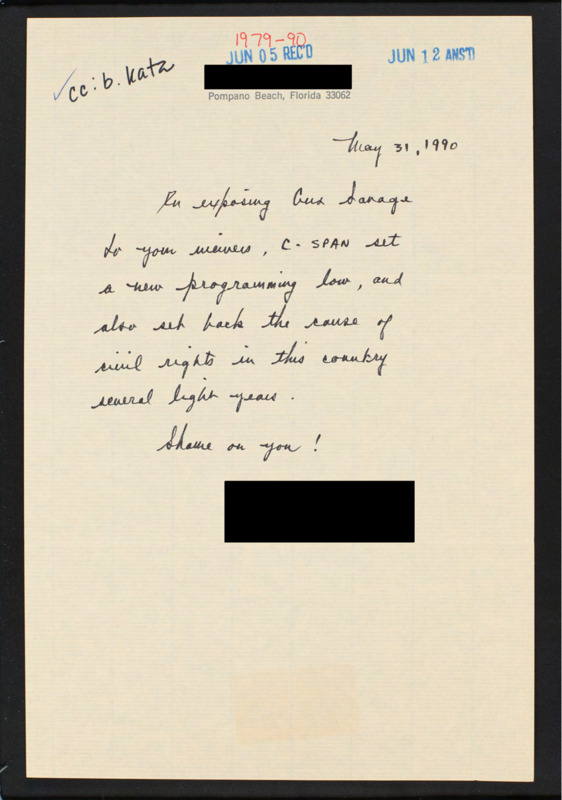 1979-90
JUN 05 REC'D
JUN 12 ANS'D
✓cc: b. Katz
Pompano Beach, Florida 33062
May 31, 1990
In exposing Gus Savage
to your viewers, C-SPAN set
a new programming low, and
also set back the cause of
civil rights in this country
several light years.
Shame on you!